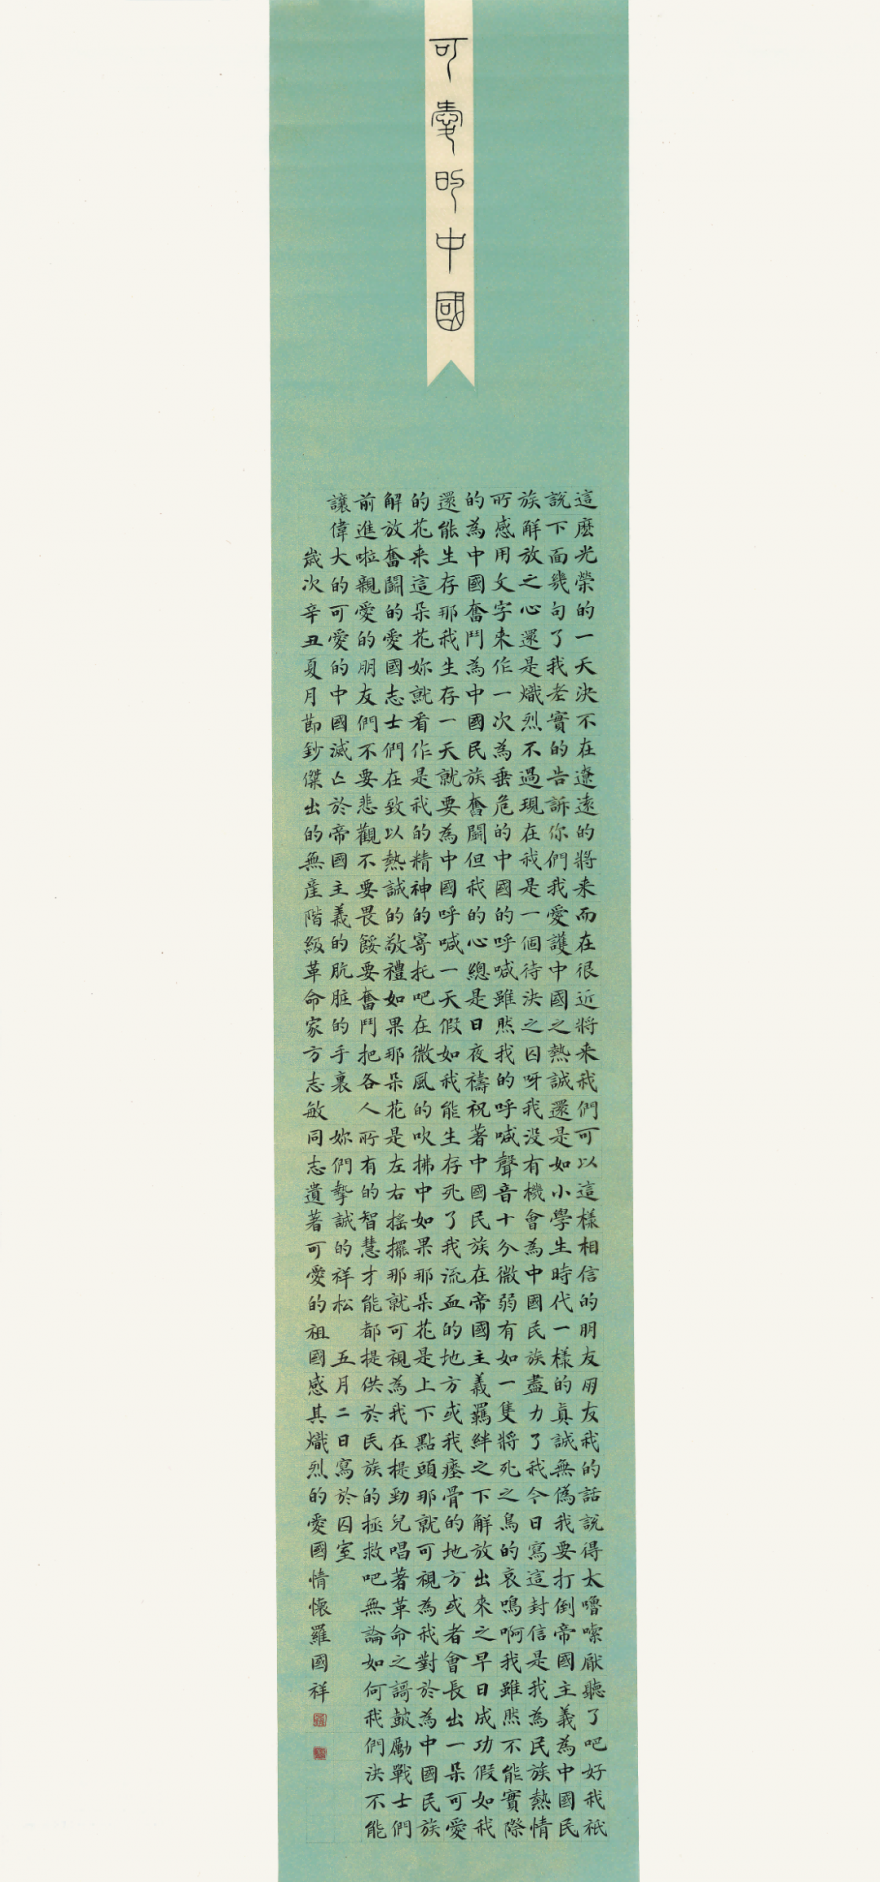 可愛的中國
這麽光榮的一天決不在遼遠的將来而在很近將来我們可以這樣相信的朋友朋友我的話説得太嚕嗦厭聽了吧好我祇
説下面幾句了我老實的告訴你們我愛護中國之熱誠還是如小學生時代一樣的真誠無偽我要打倒帝國主義為中國民
族解放之心還是熾烈不過現在我是一個待決之囚呀我没有機會為中國民族盡力了我今日寫這封信是我為民族熱情
所感用文字来作一次為垂危的中國的呼喊雖然我的呼喊聲音十分微弱有如一隻將死之鳥的哀鳴啊我雖然不能實際
的為中國奮鬥為中國民族奮鬪但我的心總是日夜禱祝著中國民族在帝國主義羈絆之下解放出來之早日成功假如我
還能生存那我生存一天就要為中國呼喊一天假如我能生存死了我流血的地方或我瘞骨的地方或者會長出一朵可愛
的花来這朵花妳就看作是我的精神的寄托吧在微風的吹拂中如果那朵花是上下點頭那就可視為我對於為中國民族
解放奮鬪的愛國志士們在致以熱誠的敬禮如果那朵花是左右摇擺那就可視為我在提勁兒唱著革命之謌鼓勵戰士們
前進啦親愛的朋友們不要悲觀不要畏餒要奮鬥把各人所有的智慧才能都提供於民族的拯救吧無論如何我們決不能
讓偉大的可愛的中國滅亡於帝國主義的肮脏的手裏 妳們摯誠的祥松 五月二日寫於囚室
歲次辛丑夏月節鈔傑出的無產階級革命家方志敏同志遺著可愛的祖國感其熾烈的愛國情懷羅國祥